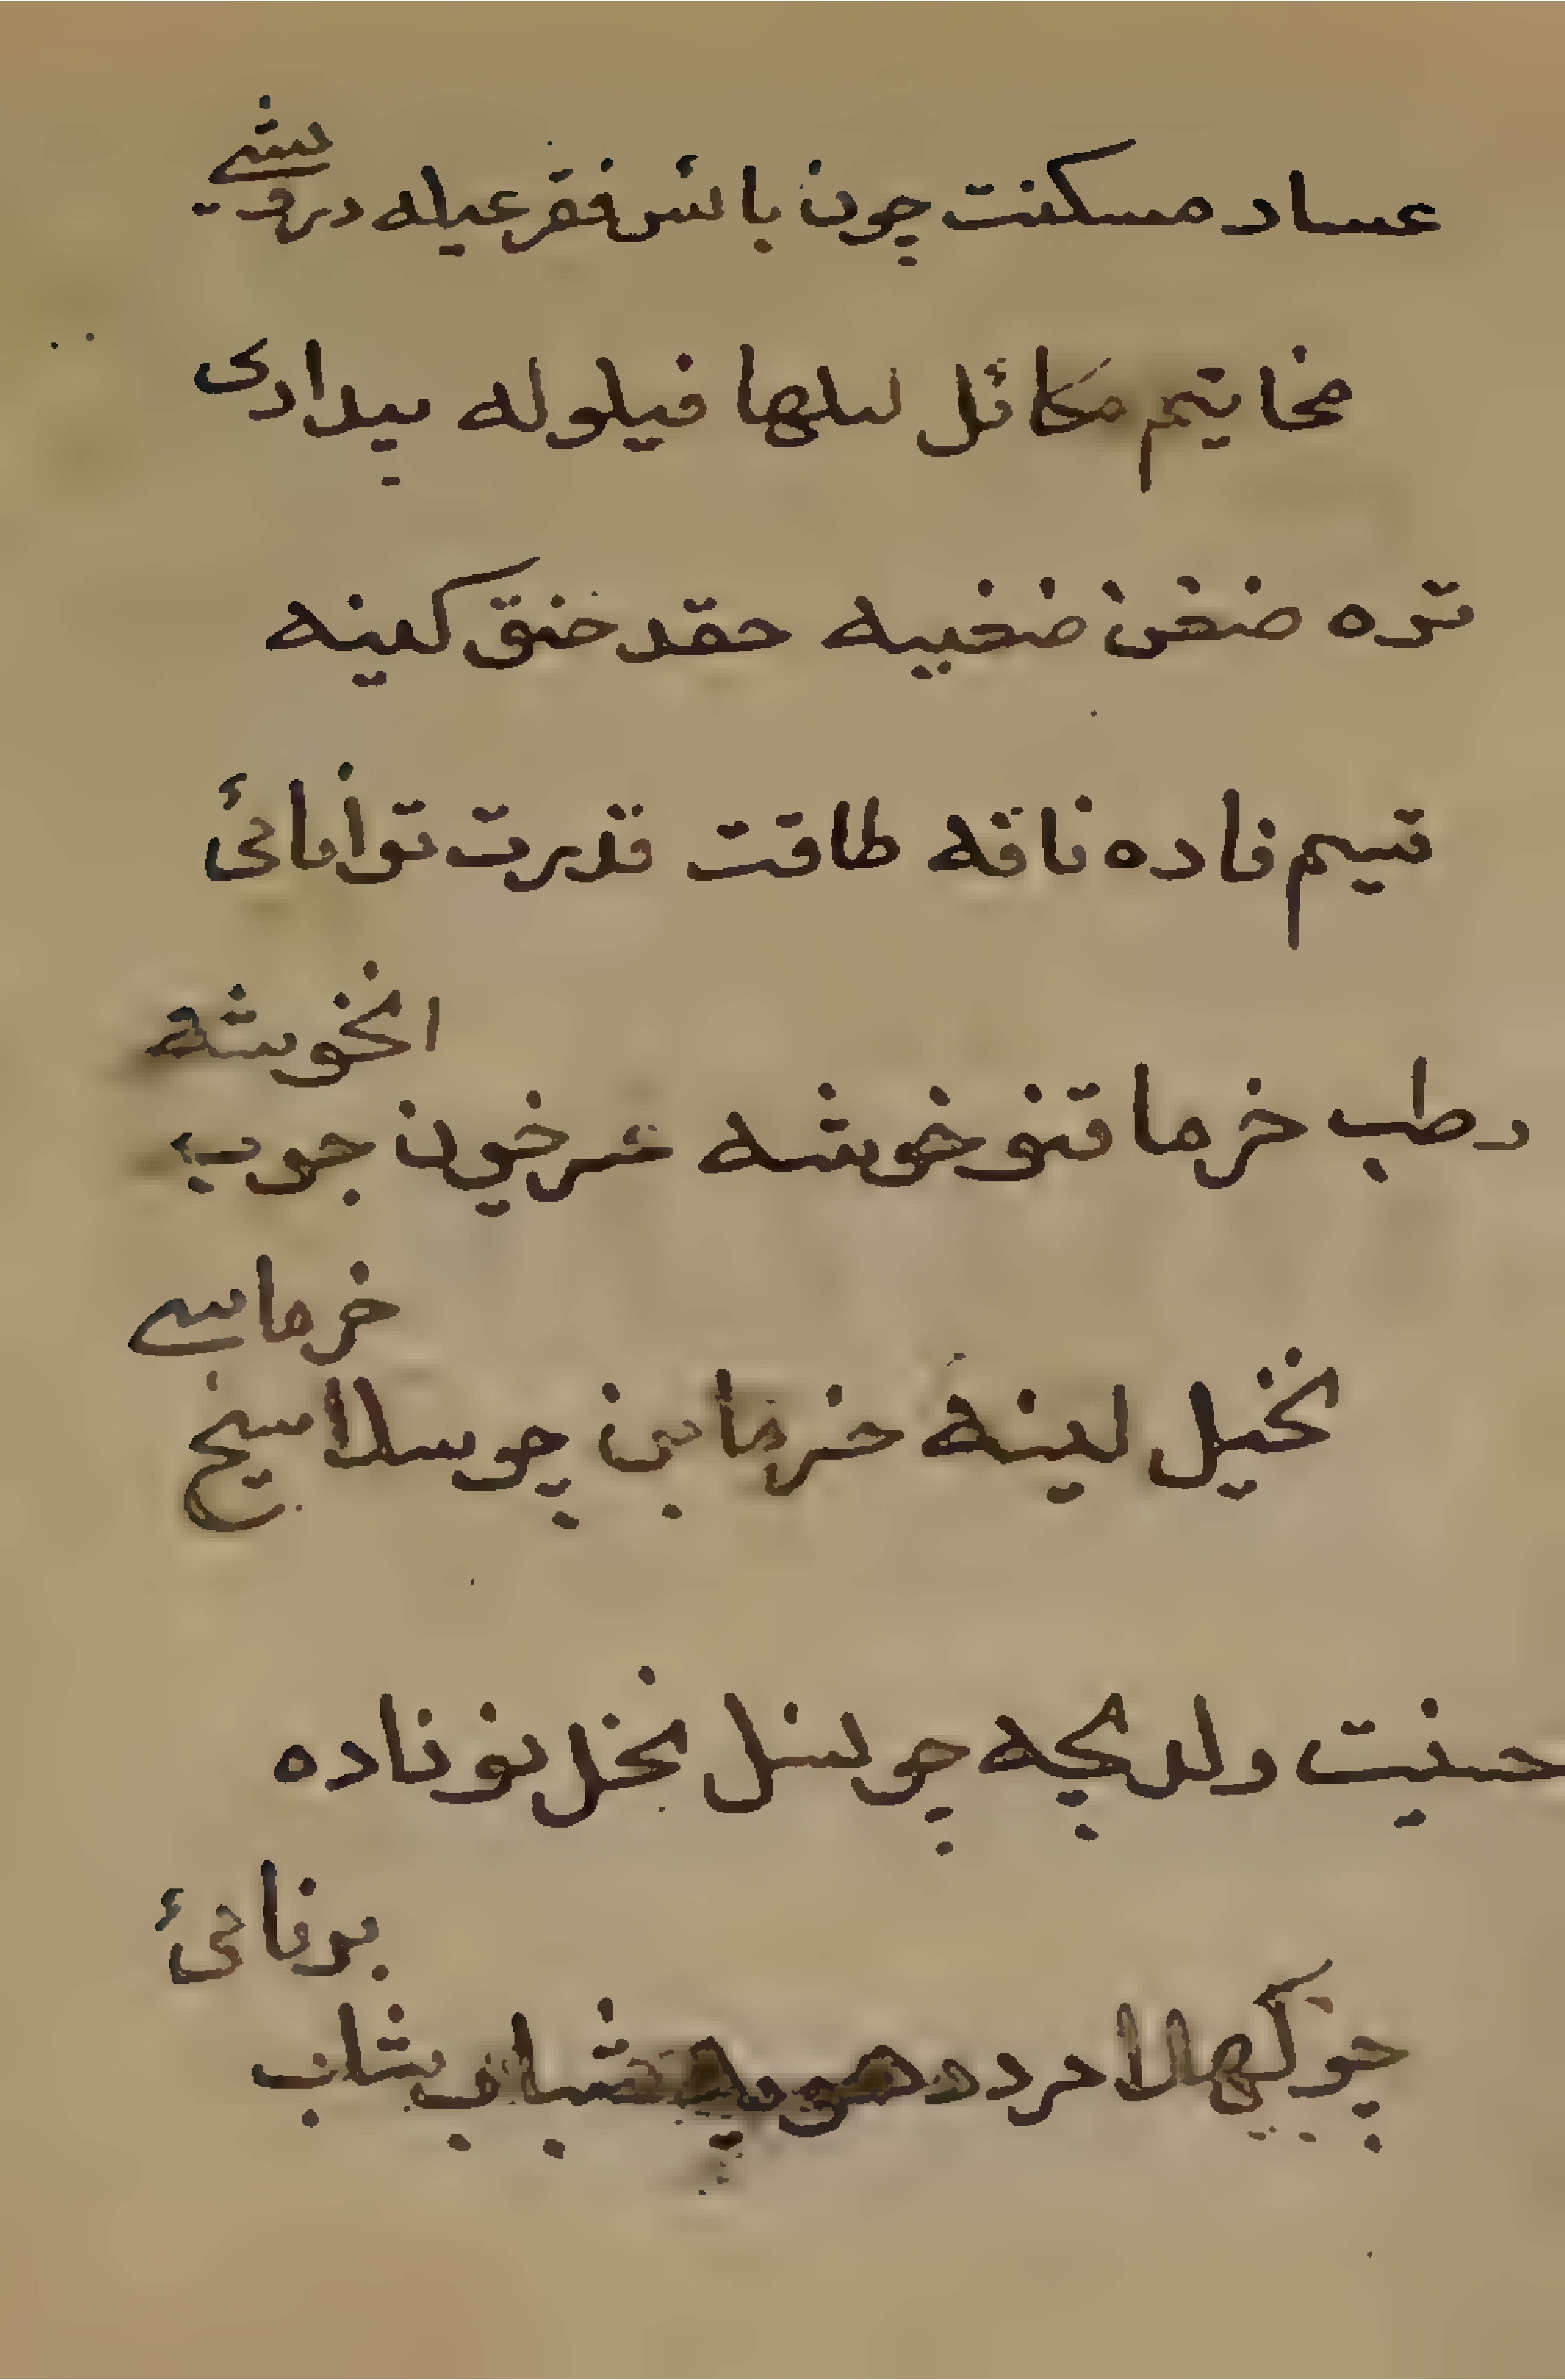 عساد مسکنت چون بائس فقر عیله درویشے
مخایتیم مکائل لیلها فیلوله بیدادی
تره ضغن ضغبیه حقد خنق کینه
قسیم فاده ناقه طاقت قدرت توانائئ
انخوشه
رطب خرما قنو خوشه عرخون جوب
خرماسے
نخیل لینه خرما بن چوسلا سیخ
حنیت ولد بچه چو نسل نخل نو ناده
برنائئ
چو کهالا مرد شباب